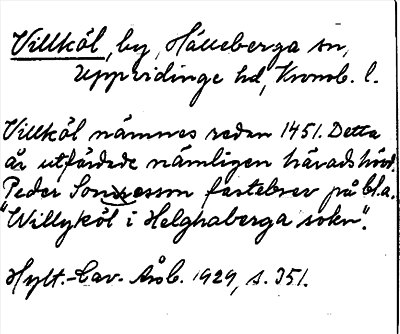 Villköl, by, Hälleberga sn,
Uppvidinge hd, Kronob. l.
Villköl nämnes redan 1451. Detta
år utfärdade nämligen häradshövd.
Peder Sonesson fastebrev på bl.a.
"Willyköl i Helghaberga sokn".
Hylt.-Cav. Årsb. 1929, s. 351.